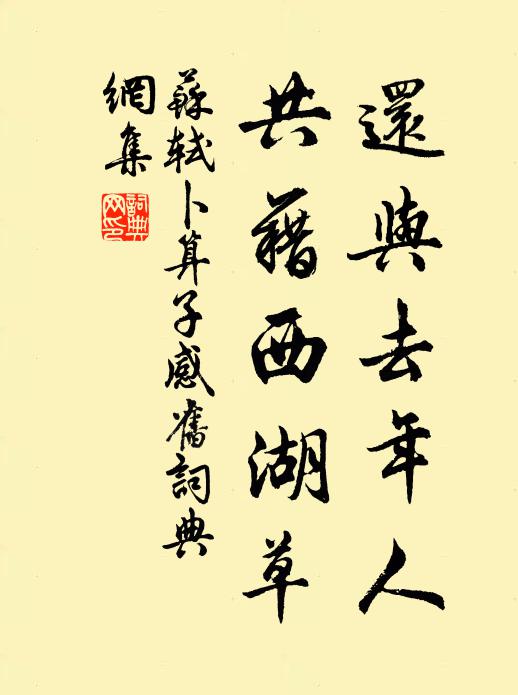 還與去年人
共藉西湖草
蘇軾卜算子感舊詞典
網集
詞典
网印